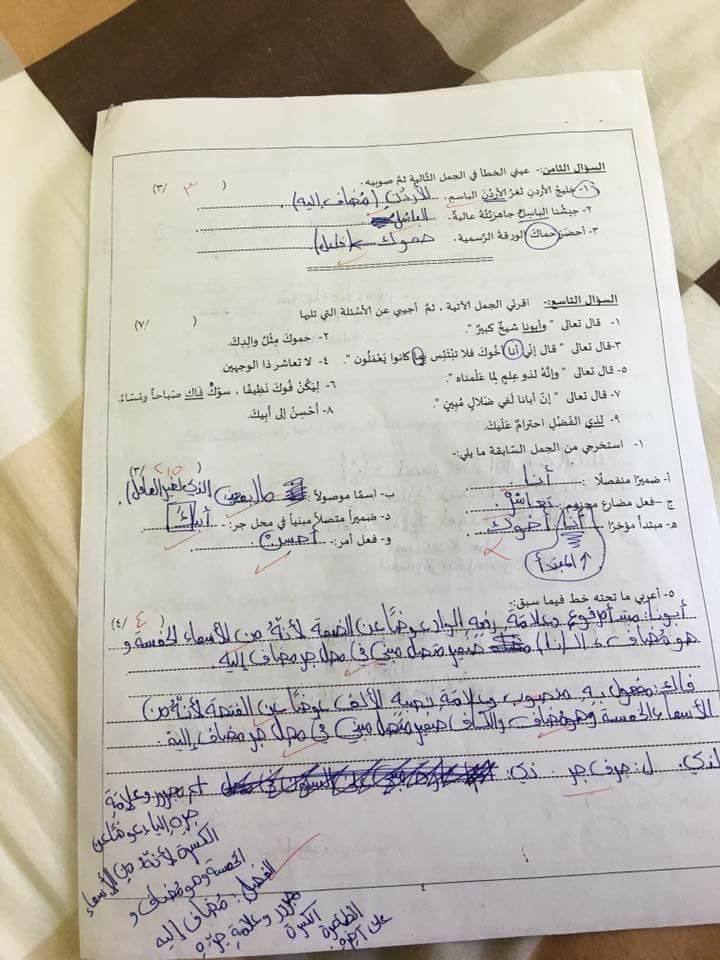 السؤال الثامن:- عيني الخطأ في الجمل التالية ثمّ صوبيه. ( ٣ /٣)
١- خليج الأردن ثغرُ الأردنَ الباسم. الأردنِ (مُضاف إليه).
٢- جيشُنا الباسِلُ جاهزيّتُهُ عالية. الباسل
٣- أحضرَ حماكَ الورقة الرّسمية. حموك (فاعل)
السؤال التاسع:- اقرئي الجمل الآتية ، ثمّ أجيبي عن الأسئلة التي تليها ( /٧)
١- قال تعالى " وأبونا شيخٌ كبيرٌ ".
٢- حموكَ مِثْلُ والِدِكَ.
٣- قال تعالى " قال إنّي أنا أخوكَ فلا تبْتَئِس بما كانوا يَعْمَلُون ".
٤- لا تعاشر ذا الوجهين
٥- قال تعالى " وإنّهُ لذو عِلمٍ لِما علّمناه ".
٦- لِيَكُنْ فُوكَ نظيفًا ، سوّكْ فَاكَ صَباحاً ومَسَاءً.
٧- قال تعالى " إنّ أبانا لَفي ضَلالٍ مُبِينٍ ".
٨- أحْسِنْ إلى أبِيكَ.
٩- لِذي الفَضْلِ احترامٌ عَلَيكَ.
١- استخرجي من الجمل السّابقة ما يلي:- ( ٢،٥ /٣)
أ- ضميرًا منفصلًا : أنا
ب- اسمًا موصولاً : ما (الذي لغير العاقل).
ج –فعل مضارع مجزوم: تعاشرْ
د- ضميراً متصلاً مبنياً في محل جر: أبيك
هـ- مبتدأ مؤخرًا : أنا أخوك
و- فعل أمر: أحسِنْ
المبتدأ
٥- أعربي ما تحته خط فيما سبق:- ( ٤ /٤)
أبونا: مبتدأ مرفوع وعلامة رفعه الواو عوضًا عن الضمة لأنّهُ من الأسماء الخمسة و
هو مُضاف، والـ(نا) ضمير متصل مبني في محل جر مضاف إليه
فاك: مفعول به منصوب وعلامة نصبه الألف عوضًا عن الفتحة لأنّهُ من
الأسماء الخمسة وهو مُضاف والكاف ضمير متصل مبني في محل جر مضاف إليه.
لذي: ل: حرف جر. ذي: اسم مجرور وعلامة
جرّه الياء عوضًا عن
الكسرة لأنّه من الأسماء
الخمسة وهو مُضاف و
الفضل: مُضاف إليه
مجرور وعلامة جرّه
الكسرة
الظاهرة
على آخره.
٤